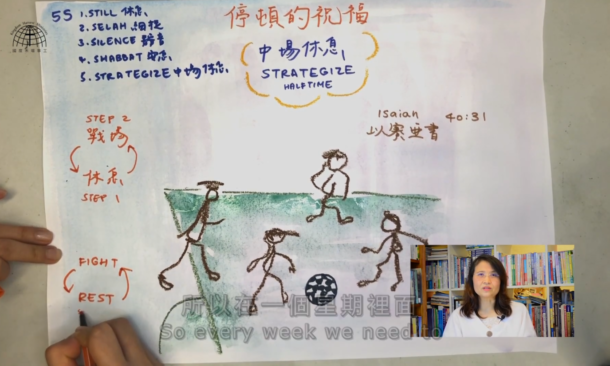 停頓的祝福
5S
1. STILL 休息
2. SELAH 細提
3. SILENCE 靜音
4. SHABBAT 安息
5. STRATEGIZE 中場休息
中場休息
STRATEGIZE
HALFTIME
Isaian 40:31
以賽亞書
STEP 2
戰場
休息
STEP 1
FIGHT
REST
所以在一個星期裡面
So every week we need to